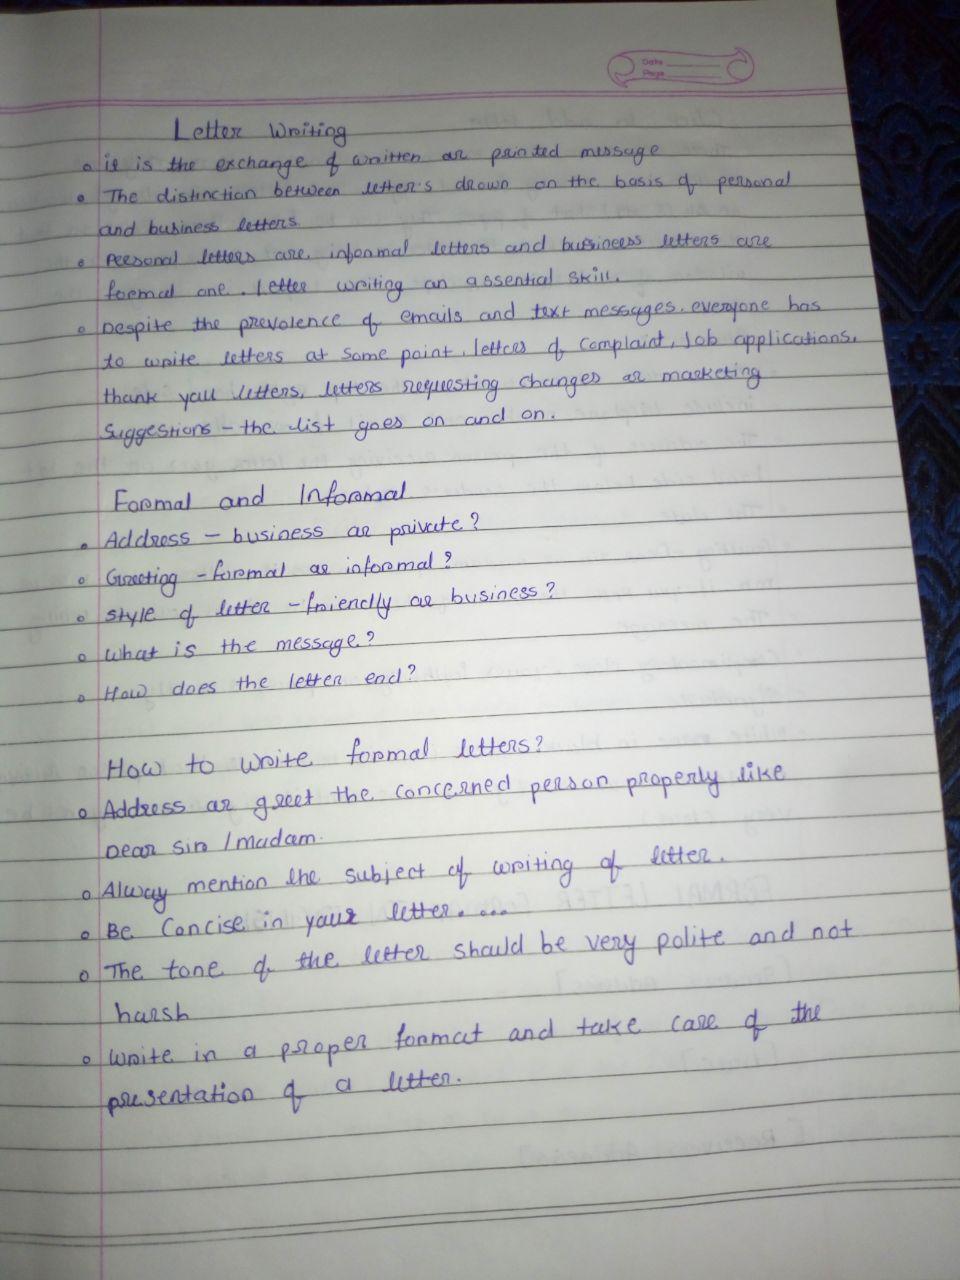 Date
Page
Letter Writing
it is the exchange of written or printed message
The distinction between letter's drown on the basis of personal
and business letters
Personal letters are informal letters and business letters are
formal one. Letter writing an assential skill.
Despite the prevalence of emails and text messages. everyone has
to write letters at some point. letters of complaint, Job applications,
thank you letters, letters requesting changes or marketing
Suggestions – the list goes on and on.
Formal and Informal
Address – business or private?
Greeting – formal or informal?
style of letter – friendly or business?
What is the message?
How does the letter end?
How to write formal letters?
Address or greet the concerned person properly like
Dear Sir / madam.
Alway mention the subject of writing of letter.
Be Concise in your letter. ...
The tone of the letter should be very polite and not
harsh
Write in a proper format and take care of the
presentation of a letter.